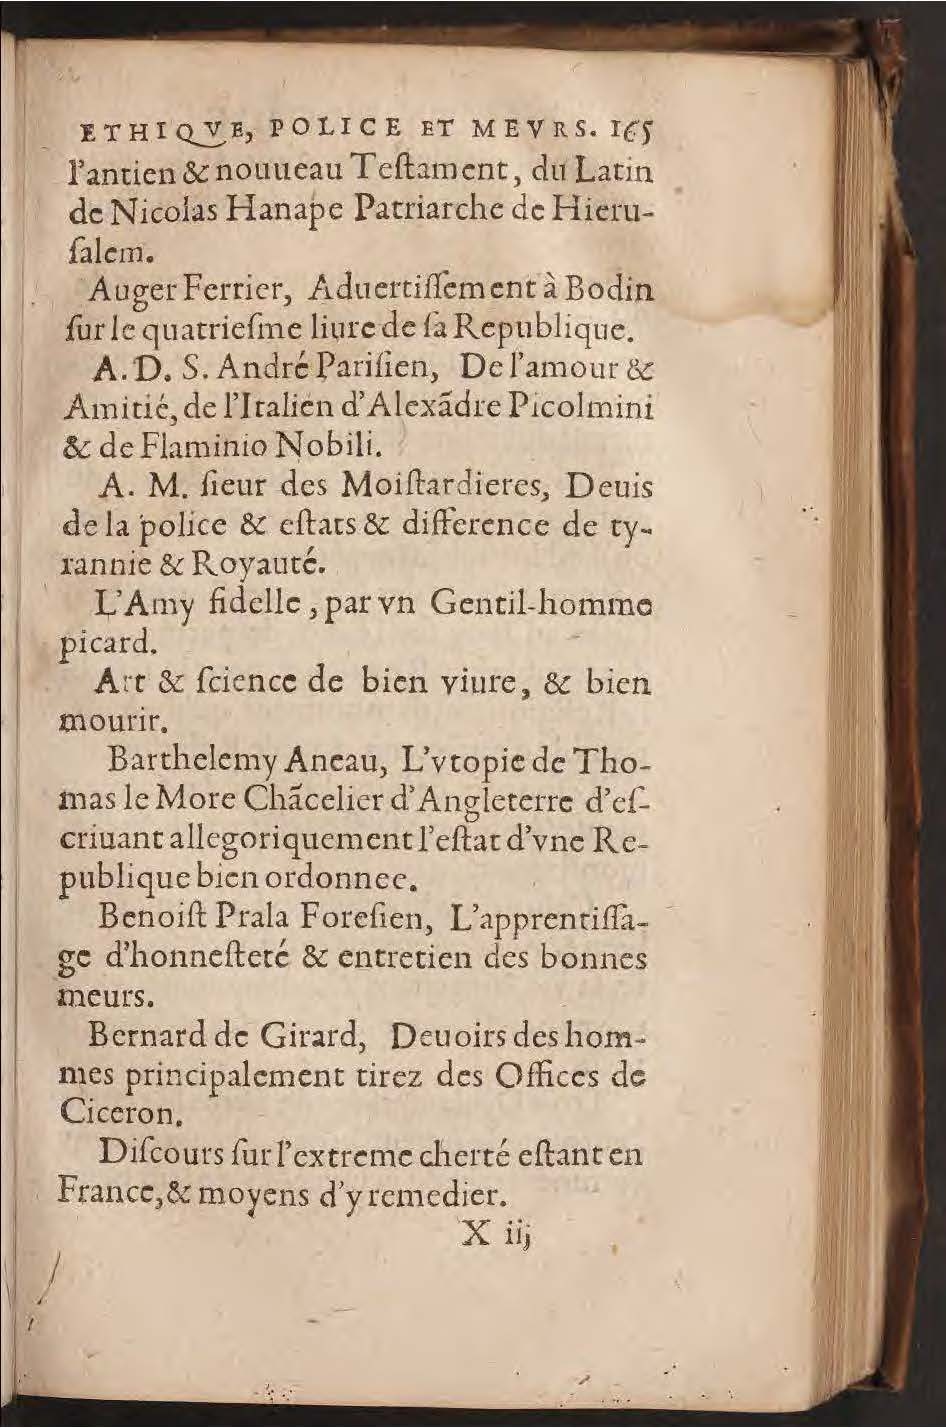 ETHIQVE, POLICE ET MEVRS. 165
l'antien & nouueau Teſtament, du Latin
de Nicolas Hanape Patriarche de Hieru-
ſalem.
Auger Ferrier, Aduertiſſement à Bodin
ſur le quatrieſme liure de ſa Republique.
A. D. S. André Pariſien, De l'amour &
Amitié, de l'Italien d'Alexãdre Picolmini
& de Flaminio Nobili.
A. M. ſieur des Moiſtardieres, Deuis
de la police & eſtats & difference de ty-
rannie & Royauté.
L'Amy fidelle, par vn Gentil-homme
picard.
Art & ſcience de bien viure, & bien
mourir.
Barthelemy Aneau, L'vtopie de Tho-
mas le More Chãcelier d'Angleterre d'eſ-
criuant allegoriquement l'eſtat d'vne Re-
publique bien ordonnee.
Benoiſt Prala Foreſien, L'apprentiſſa-
ge d'honneſteté & entretien des bonnes
meurs.
Bernard de Girard, Deuoirs des hom-
mes principalement tirez des Offices de
Ciceron.
Diſcours ſur l'extreme cherté eſtant en
France, & moyens d'y remedier.
X iij